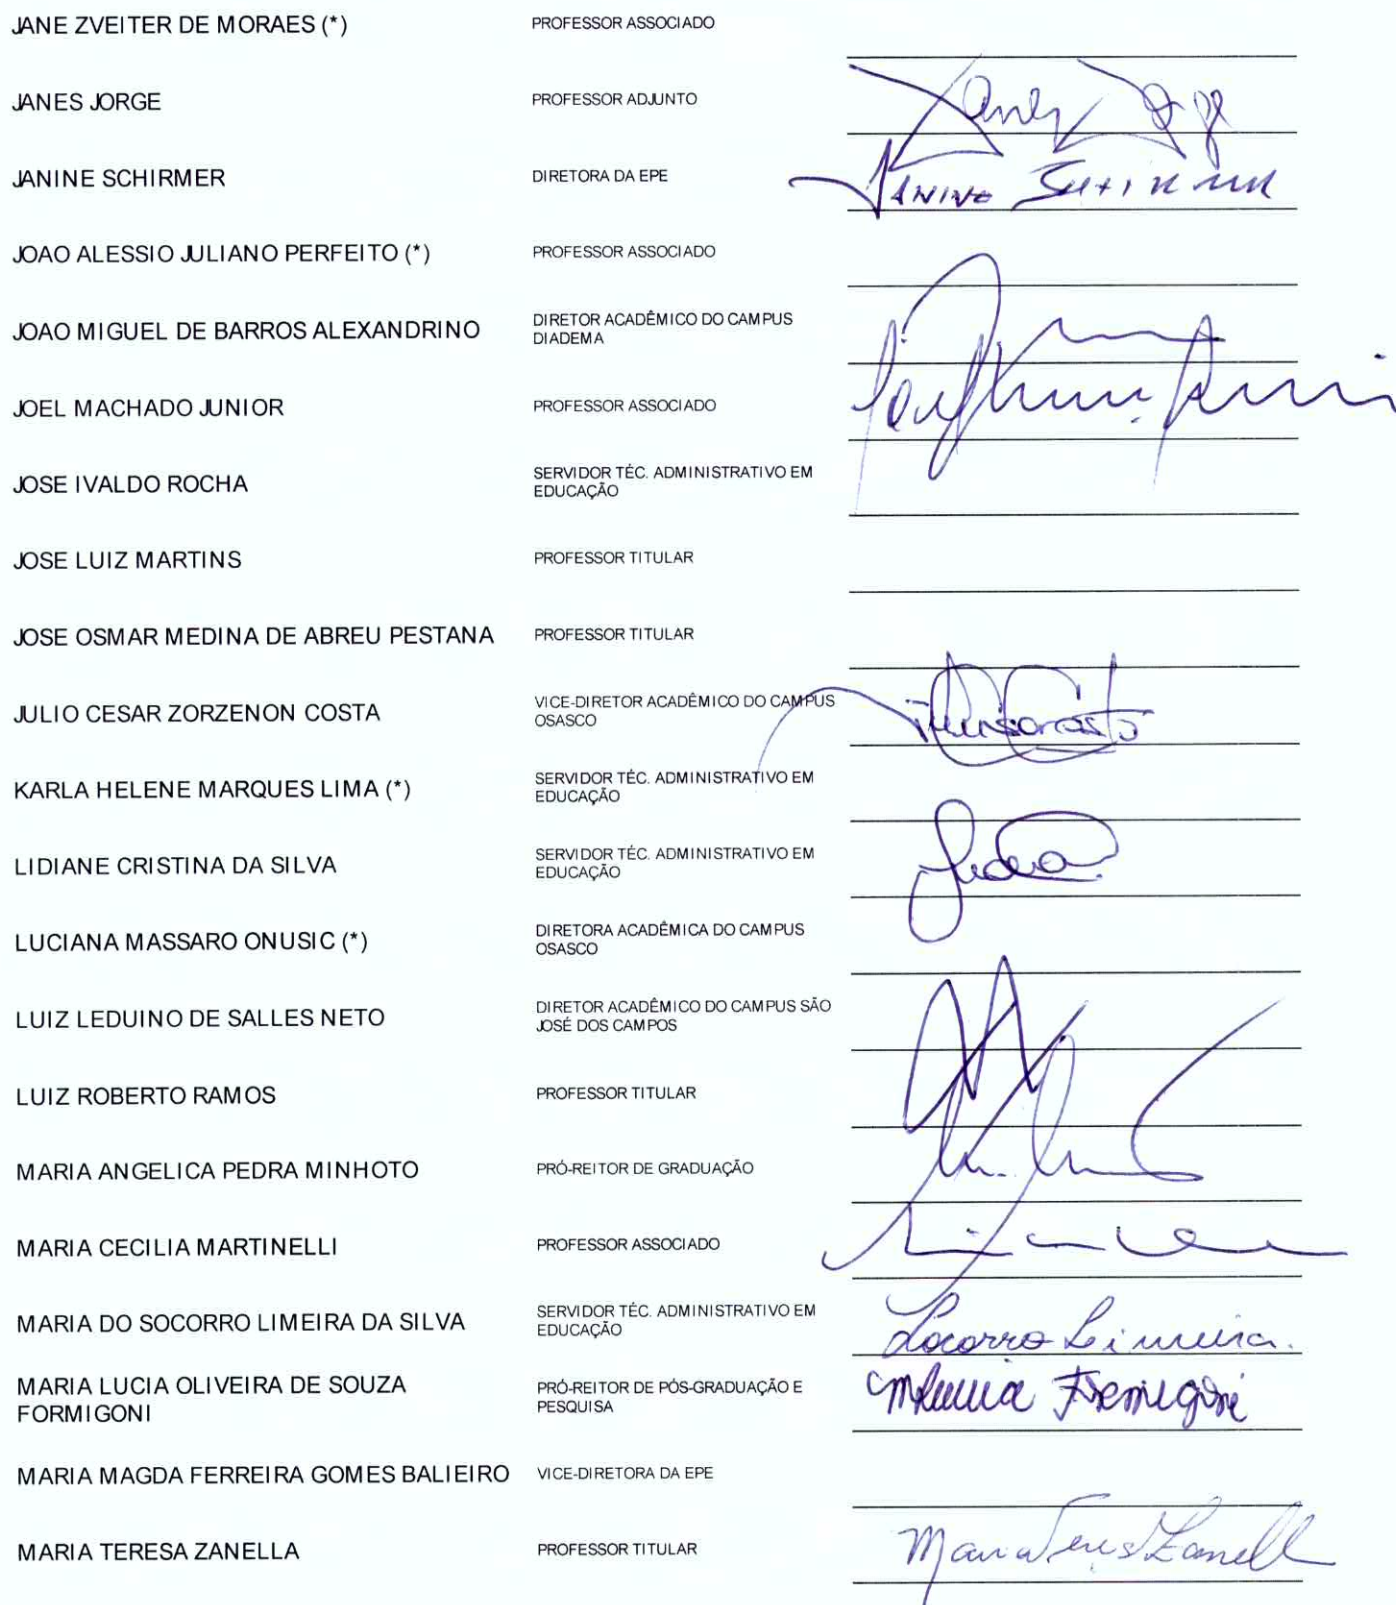 JANE ZVEITER DE MORAES (*) PROFESSOR ASSOCIADO
JANES JORGE PROFESSOR ADJUNTO Janes Jorge
JANINE SCHIRMER DIRETORA DA EPE JANINE SCHIRMER
JOAO ALESSIO JULIANO PERFEITO (*) PROFESSOR ASSOCIADO
JOAO MIGUEL DE BARROS ALEXANDRINO DIRETOR ACADÊMICO DO CAMPUS
DIADEMA
JOEL MACHADO JUNIOR PROFESSOR ASSOCIADO
JOSE IVALDO ROCHA SERVIDOR TÉC. ADMINISTRATIVO EM
EDUCAÇÃO
JOSE LUIZ MARTINS PROFESSOR TITULAR
JOSE OSMAR MEDINA DE ABREU PESTANA PROFESSOR TITULAR
JULIO CESAR ZORZENON COSTA VICE-DIRETOR ACADÊMICO DO CAMPUS
OSASCO
KARLA HELENE MARQUES LIMA (*) SERVIDOR TÉC. ADMINISTRATIVO EM
EDUCAÇÃO
LIDIANE CRISTINA DA SILVA SERVIDOR TÉC. ADMINISTRATIVO EM
EDUCAÇÃO
LUCIANA MASSARO ONUSIC (*) DIRETORA ACADÊMICA DO CAMPUS
OSASCO
LUIZ LEDUINO DE SALLES NETO DIRETOR ACADÊMICO DO CAMPUS SÃO
JOSÉ DOS CAMPOS
LUIZ ROBERTO RAMOS PROFESSOR TITULAR
MARIA ANGELICA PEDRA MINHOTO PRÓ-REITOR DE GRADUAÇÃO
MARIA CECILIA MARTINELLI PROFESSOR ASSOCIADO
MARIA DO SOCORRO LIMEIRA DA SILVA SERVIDOR TÉC. ADMINISTRATIVO EM
EDUCAÇÃO Socorro Limeira.
MARIA LUCIA OLIVEIRA DE SOUZA
FORMIGONI PRÓ-REITOR DE PÓS-GRADUAÇÃO E
PESQUISA MLucia Formigoni
MARIA MAGDA FERREIRA GOMES BALIEIRO VICE-DIRETORA DA EPE
MARIA TERESA ZANELLA PROFESSOR TITULAR Maria Teresa Zanella